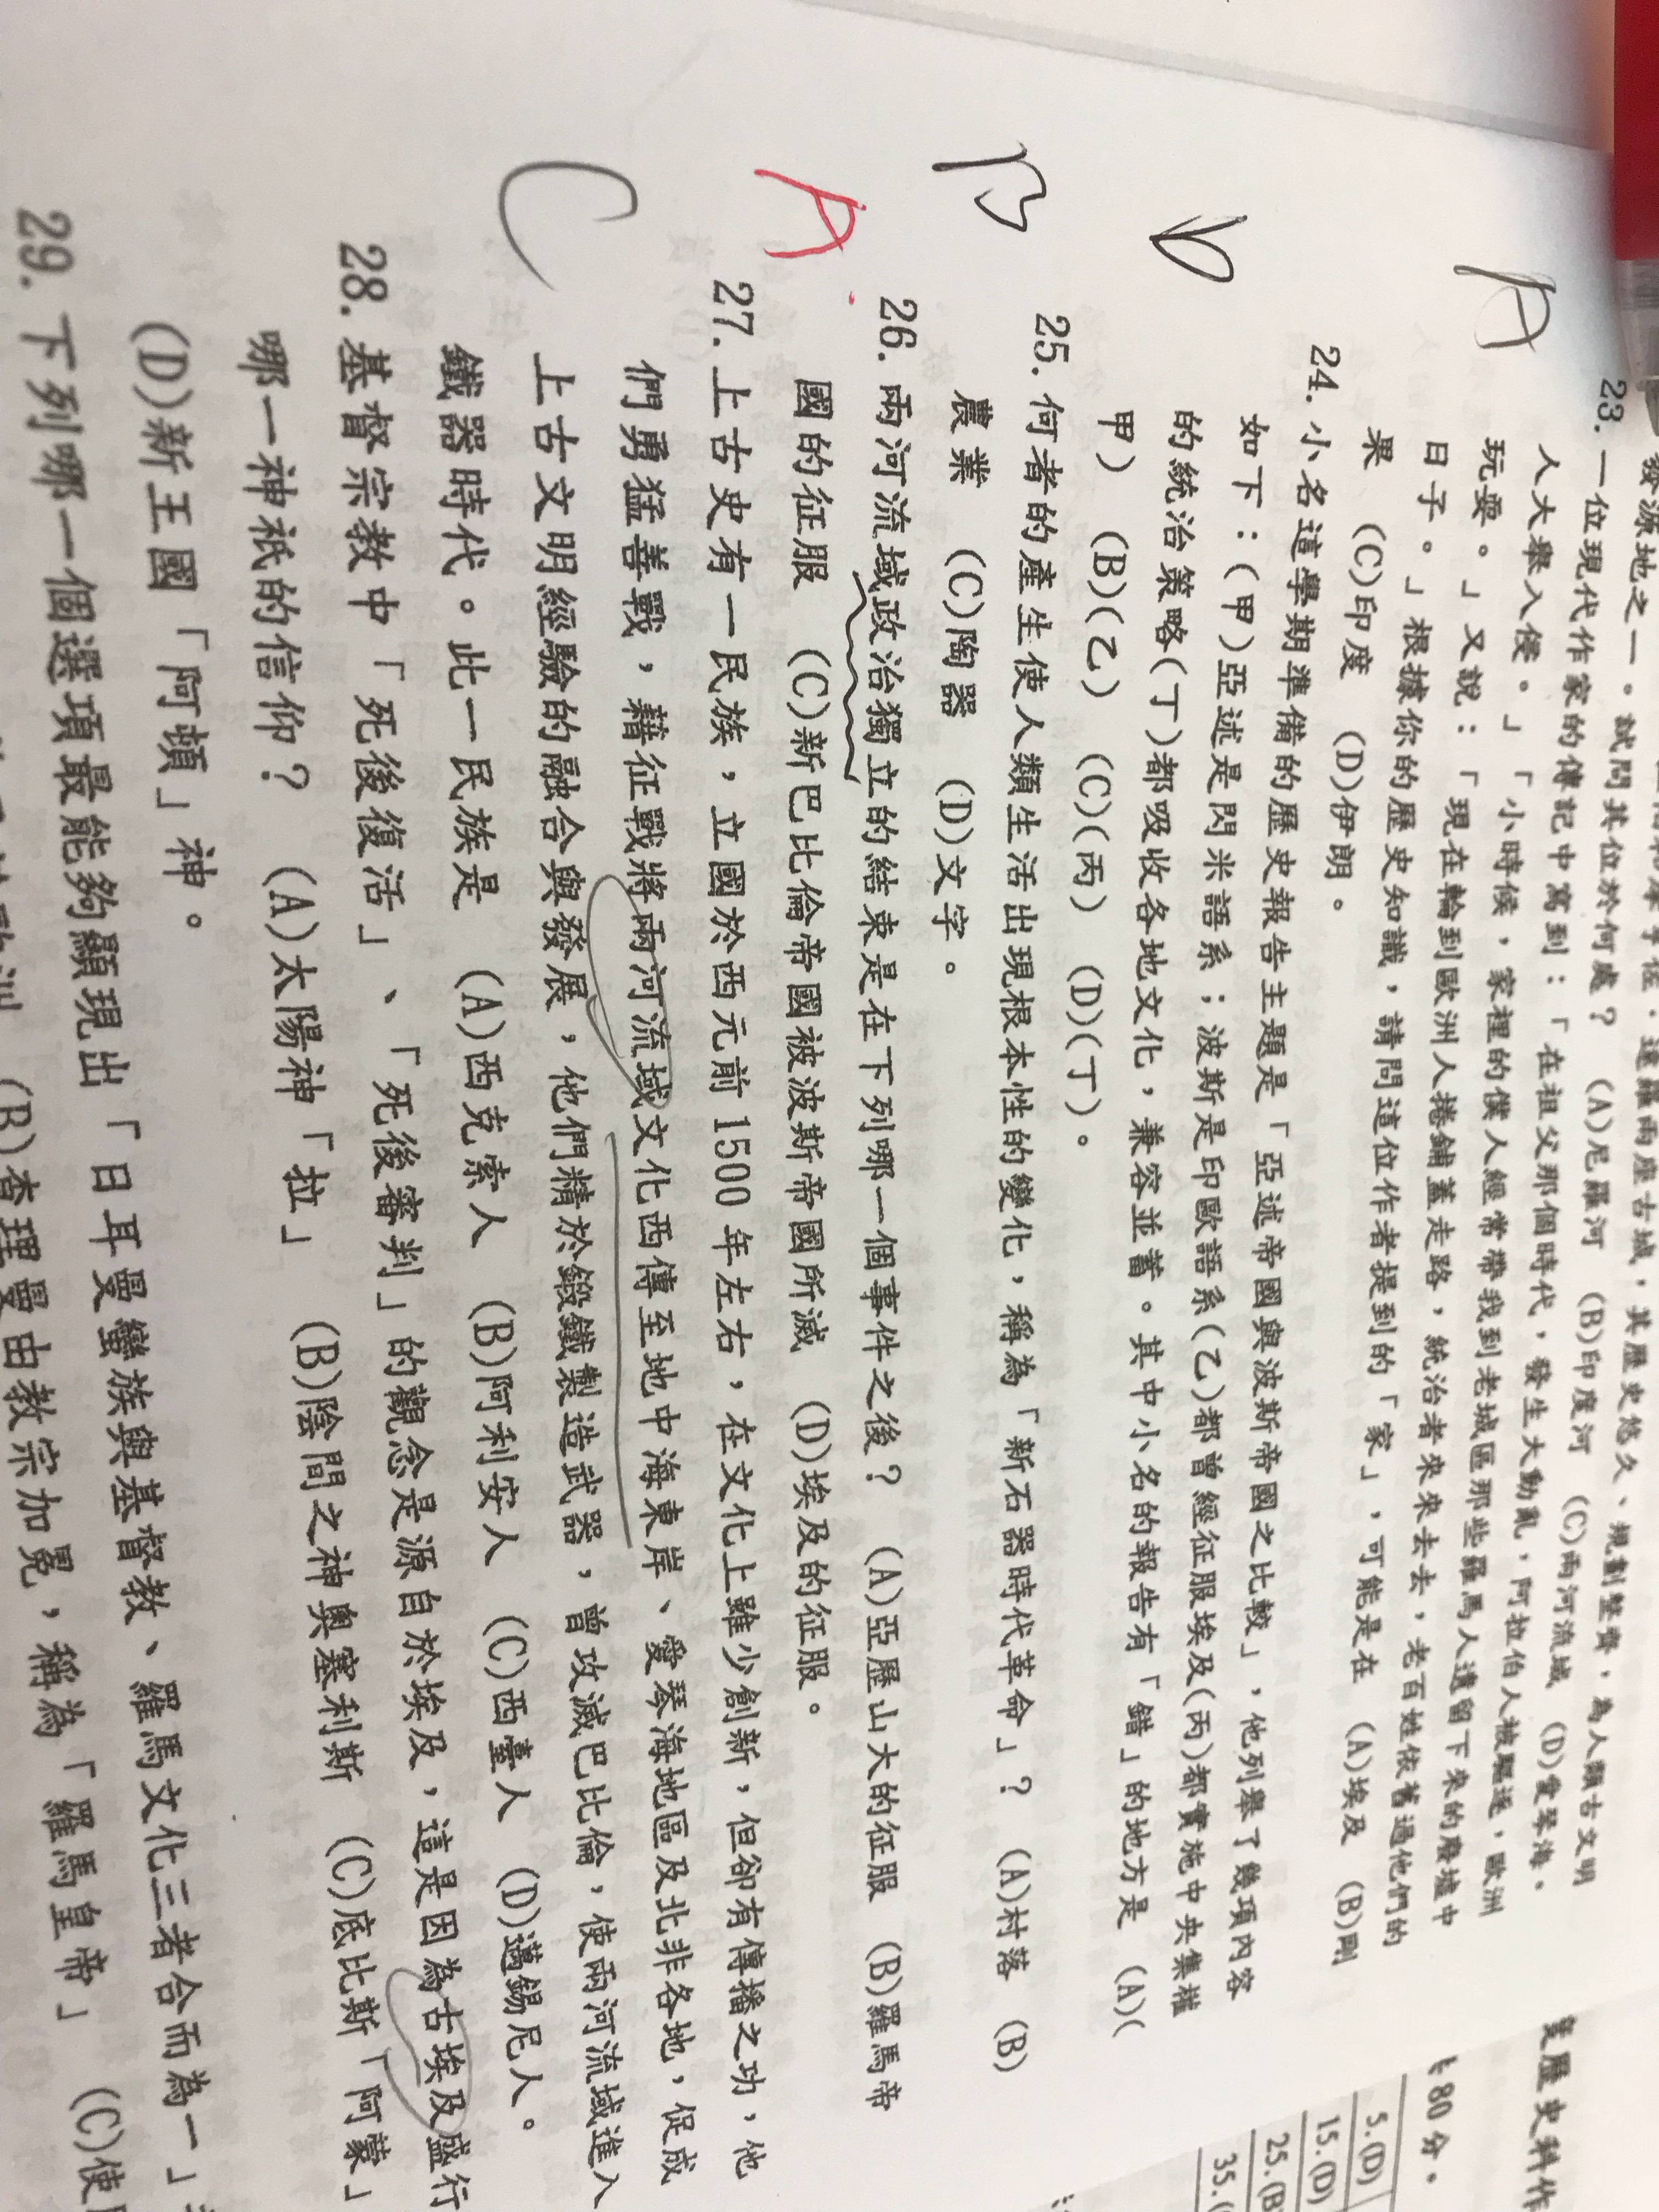 發源地之一。試問其位於何處？ (A)尼羅河 (B)印度河 (C)兩河流域 (D)愛琴海。
23.一位現代作家的傳記中寫到：「在祖父那個時代，發生大動亂，阿拉伯人被驅逐，歐洲
人大舉入侵。」「小時候，家裡的僕人經常帶我到老城區那些羅馬人遺留下來的廢墟中
玩耍。」又說：「現在輪到歐洲人捲鋪蓋走路，統治者來來去去，老百姓依舊過他們的
日子。」根據你的歷史知識，請問這位作者提到的「家」，可能是在 (A)埃及 (B)剛
果 (C)印度 (D)伊朗。
A
24.小名這學期準備的歷史報告主題是「亞述帝國與波斯帝國之比較」，他列舉了幾項內容
如下：(甲)亞述是閃米語系；波斯是印歐語系(乙)都曾經征服埃及(丙)都實施中央集權
的統治策略(丁)都吸收各地文化，兼容並蓄。其中小名的報告有「錯」的地方是 (A)(
甲) (B)(乙) (C)(丙) (D)(丁)。
25.何者的產生使人類生活出現根本性的變化，稱為「新石器時代革命」？ (A)村落 (B)
農業 (C)陶器 (D)文字。
B
26.兩河流域政治獨立的結束是在下列哪一個事件之後？ (A)亞歷山大的征服 (B)羅馬帝
國的征服 (C)新巴比倫帝國被波斯帝國所滅 (D)埃及的征服。
A
27.上古史有一民族，立國於西元前1500年左右，在文化上雖少創新，但卻有傳播之功，他
們勇猛善戰，藉征戰將兩河流域文化西傳至地中海東岸、愛琴海地區及北非各地，促成
上古文明經驗的融合與發展，他們精於鍛鐵製造武器，曾攻滅巴比倫，使兩河流域進入
鐵器時代。此一民族是 (A)西克索人 (B)阿利安人 (C)西臺人 (D)邁錫尼人。
C
28.基督宗教中「死後復活」、「死後審判」的觀念是源自於埃及，這是因為古埃及盛行
哪一神祇的信仰？ (A)太陽神「拉」 (B)陰間之神奧塞利斯 (C)底比斯「阿蒙」
(D)新王國「阿頓」神。
29.下列哪一個選項最能夠顯現出「日耳曼蠻族與基督教、羅馬文化三者合而為一」
(B)查理曼由教宗加冕，稱為「羅馬皇帝」 (C)使
歷史科作
80分。
5.(D)
15.(D)
25.(B
35.(